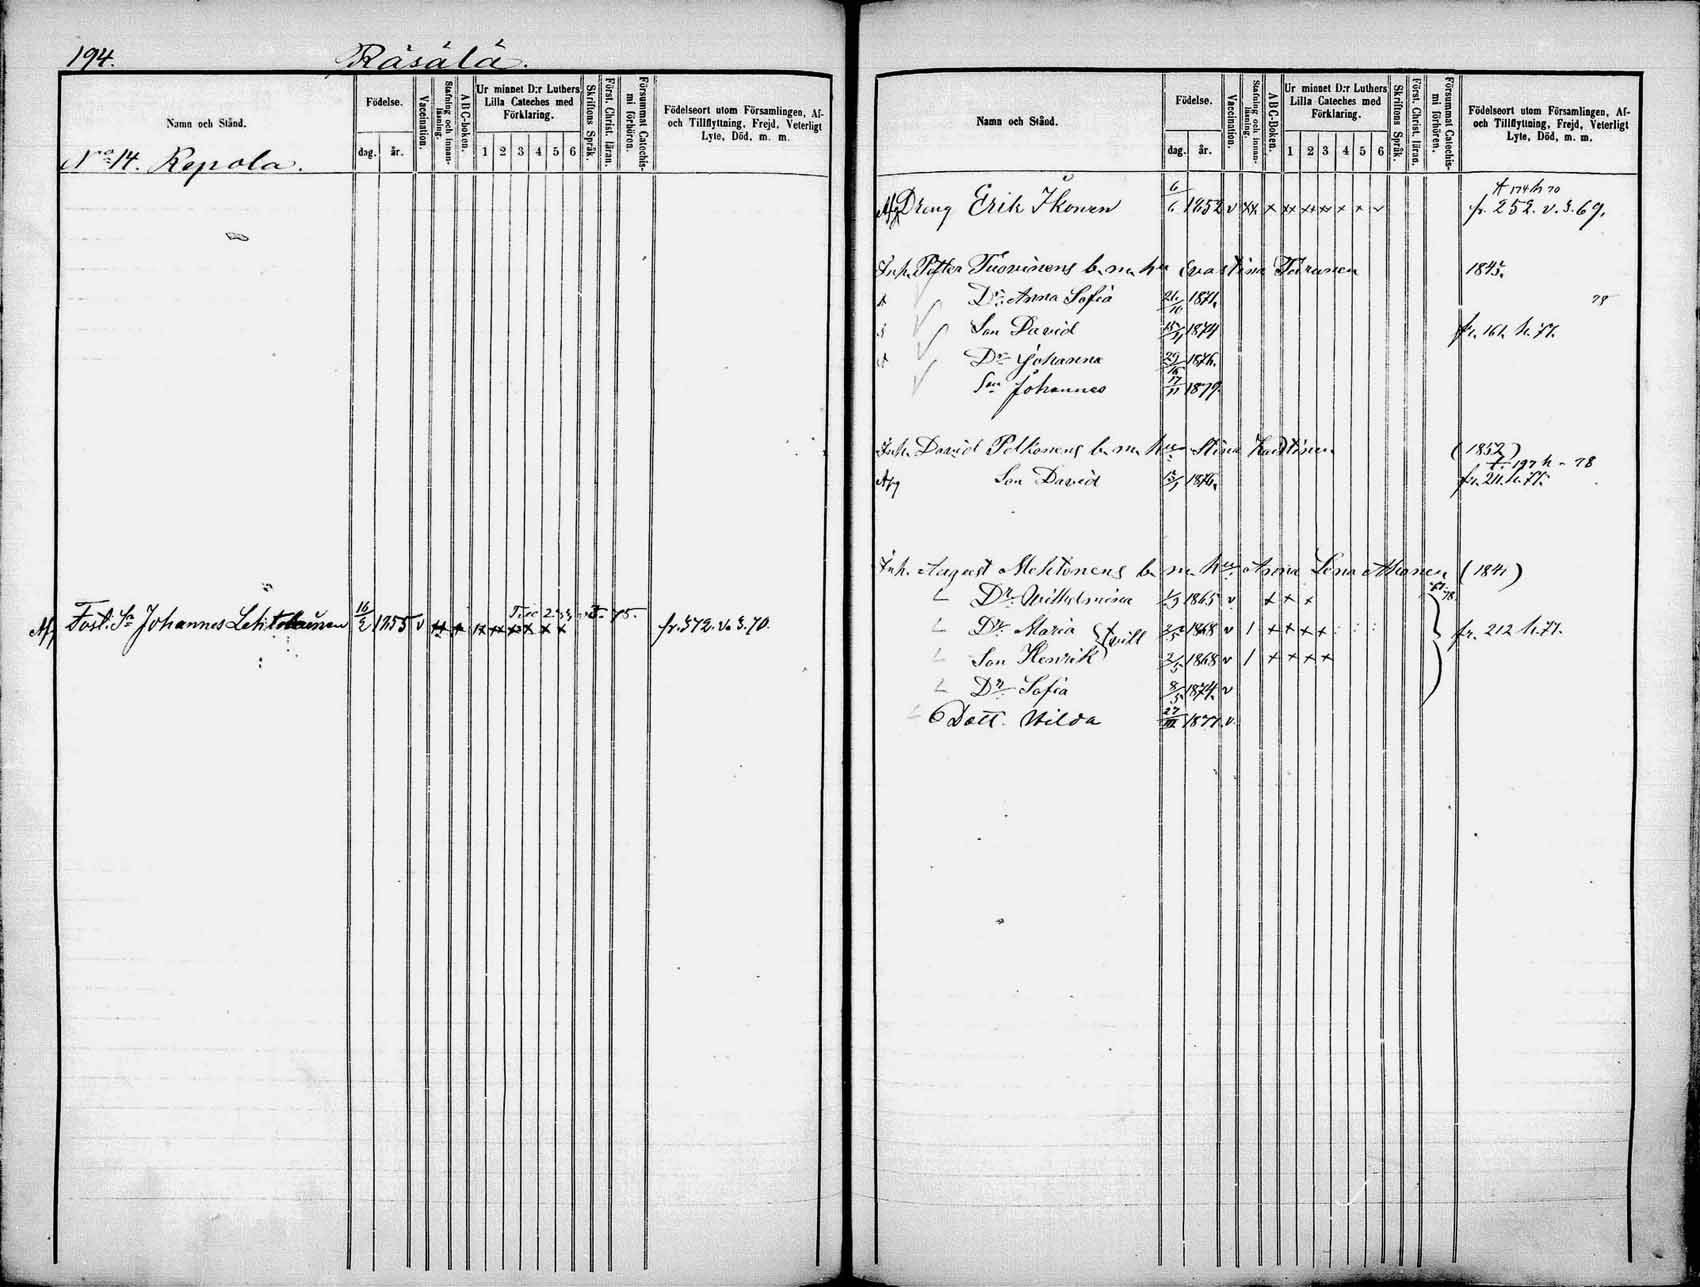 194. Räsälä.
Namn och Stånd.
Födelse.
dag. år.
Vaccination.
Stafning och innanläsning.
ABC-boken.
Ur minnet D:r Luthers Lilla Cateches med Förklaring.
1 2 3 4 5 6
Skriftens Språk.
Först. Christ. läran.
Försummat Catechismi förhören.
Födelseort utom Församlingen, Af- och Tillflyttning, Frejd, Veterligt Lyte, Död. m. m.
No 14. Repola.
Fost. Sn Johannes 16/2 1855 v fr. 372. v. 3. 70.
Namn och Stånd.
Födelse.
dag. år.
Vaccination.
Stafning och innanläsning.
ABC-boken.
Ur minnet D:r Luthers Lilla Cateches med Förklaring.
1 2 3 4 5 6
Skriftens Språk.
Först. Christ. läran.
Försummat Catechismi förhören.
Födelseort utom Församlingen, Af- och Tillflyttning, Frejd, Veterligt Lyte, Död, m. m.
Afg Dreng Erik Ikonen 6/6 1852 v fr. 252. v. 3. 69.
Inh. Petter Tuovinens b. m. hu Eva Stina Turunen 1845.
Dr. Anna Sofia 1871.
Son David 1874 fr. 161. h. 77.
Dr Johanna 1876.
Son Johannes 17/11 1879.
Inh. David Pelkonens b. m. hu Stina (1852)
197 h - 78
Afg Son David 1876. fr. 211. h. 77.
Inh. August b. m. hu Anna Lena (1841)
Dr. Wilhelmina 1865 v
Dr. Maria 1868 v fr. 212 h. 77.
Son Henrik 2/5 1868 v
Dr. Sofia 8/5 1874 v
Dott. Hilda 27/III 1877. v.